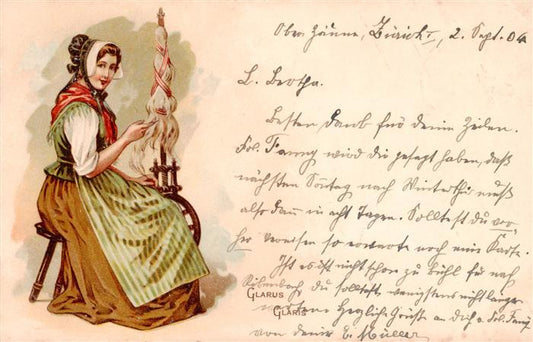 Ober Zäune, Zürich I, 2. Sept. 04
L. Bertha.
Besten Dank für deine Zeilen.
Frl. Fanny wird dir gesagt haben, daß
nächsten Sonntag nach Winterthur muß
also dann in acht Tagen. Solltest du vor-
her verreisen so erwarte noch eine Karte.
Ist es dir nicht schon zu kühl für nach
du solltest wenigstens nicht länger
GLARUS
warten. Herzliche Grüße an Dich u. Frl. Fanny
GLARIS
von deiner E. Müller